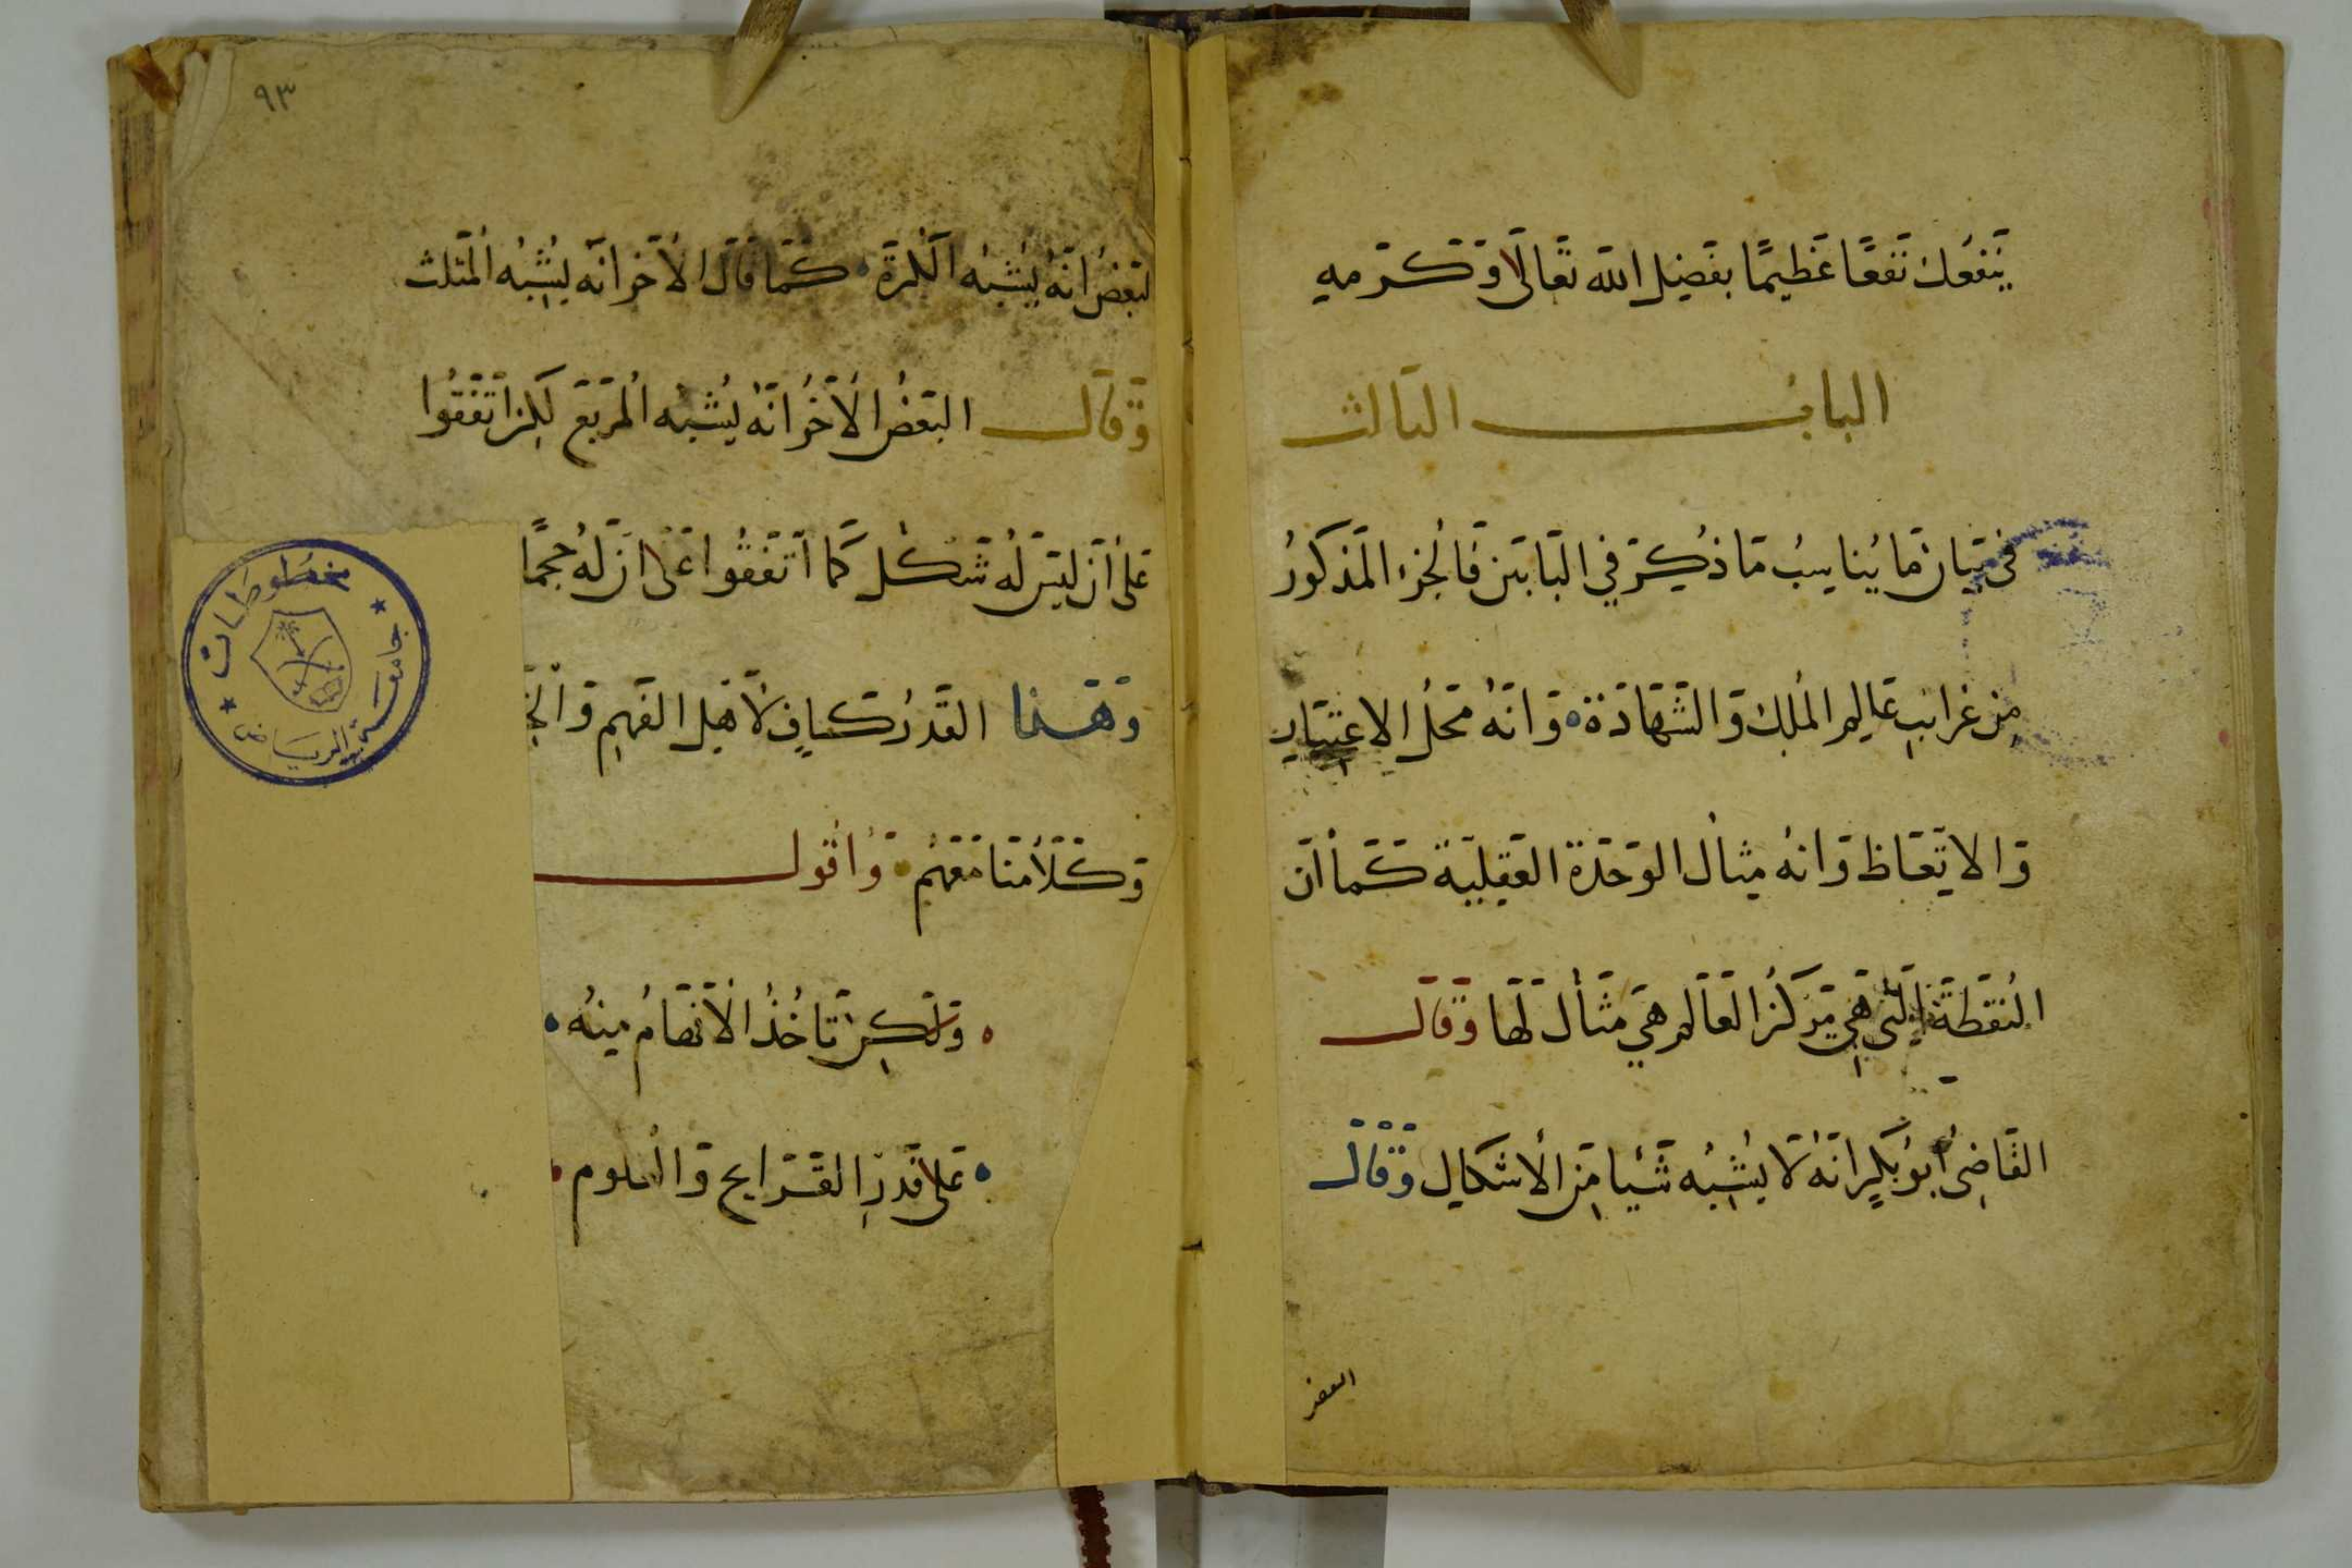 يَنفَعُكَ نَفعًا عَظِيمًا بفَضلِ الله تَعَالَى وَكَرَمهِ
البابُ الثالث
في بَيَان مَا يُنَاسِبُ مَا ذُكِرَ فِي البَابَين فَالجُزءُ المَذكورُ
مِن غرائبِ عَالمِ المُلكِ وَالشَهَادَة وَانَهُ مَحَلُ الاعتبَارِ
وَالاتِعَاظ وَانهُ مِثال الوَحدَة العَقلِيَة كَمَا أن
النُقطَة التي هِيَ مَركزُ العَالَم هِيَ مِثَال لَهَا وَقَالَ
القَاضِى أبُو بَكرٍ انهُ لا يُشبِهُ شَيئا مِن الأشكالِ وَقَالَ
البعض
٩٣
البَعضُ انَهُ يُشبِهُ الكُرَة كَمَا قَالَ الأَخر انَه يُشبِهُ المُثلث
وَقَالَ البَعضُ الأَخَرُ انَهُ يُشبِهُ المُرَبَعَ لَكِن اتَفَقُوا
عَلَى أن لَيسَ لَهُ شَكل كَمَا اتَفَقُوا عَلَى ان لَهُ حجمًا
وَهَذا القَدرُ كافٍ لأهلِ الفَهمِ وَ
وَكَلَامُنَا مَعَهُم وَاقول
وَلَكِن تَأخُذُ الأفهَامُ مِنهُ
عَلى قَدرِ القَرَايح وَالعلوم
مخطوطات
جامعة الرياض